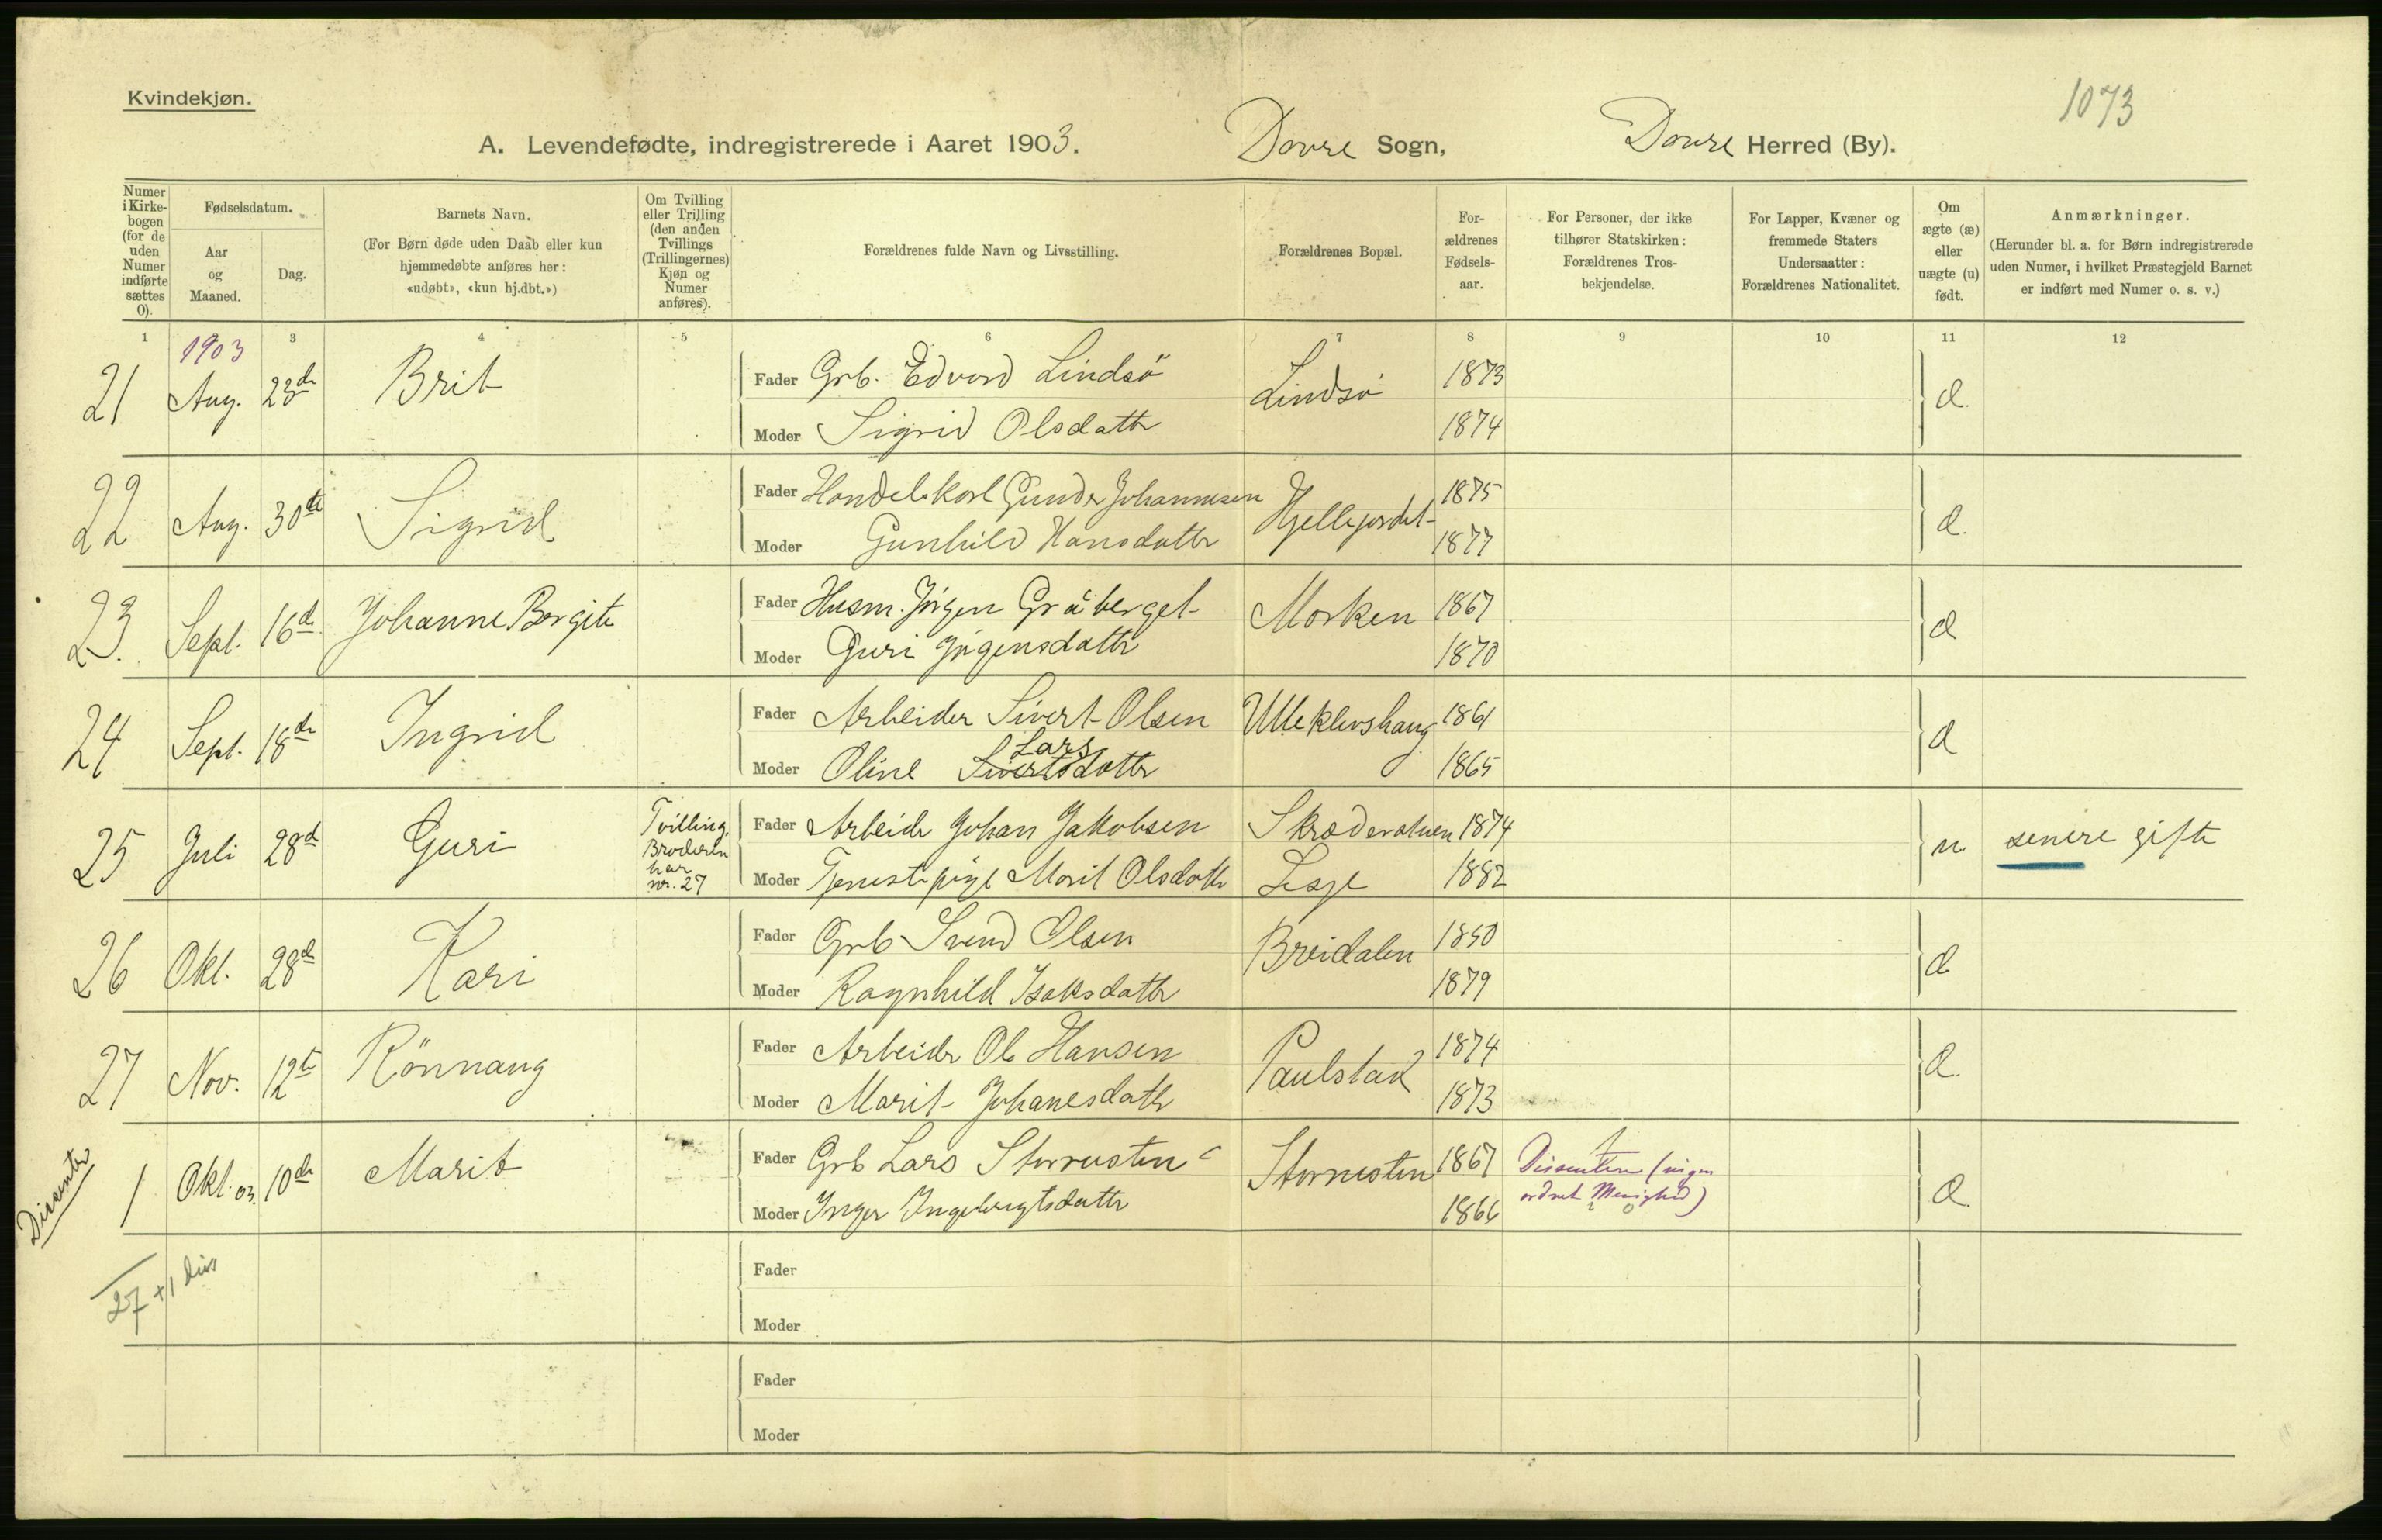 Kvindekjøn.
1073
A. Levendefødte, indregistrerede i Aaret 1903. Dovre Sogn, Dovre Herred (By).
Numer i Kirkebogen (for de uden Numer indførte sættes 0).
Fødselsdatum.
Aar og Maaned.
Dag.
Barnets Navn.
(For Børn døde uden Daab eller kun hjemmedøbte anføres her: «udøbt», «kun hj.dbt.»)
Om Tvilling eller Trilling (den anden Tvillings (Trillingernes) Kjøn og Numer anføres).
Forældrenes fulde Navn og Livsstilling.
Forældrenes Bopæl.
Forældrenes Fødselsaar.
For Personer, der ikke tilhører Statskirken: Forældrenes Trosbekjendelse.
For Lapper, Kvæner og fremmede Staters Undersaatter: Forældrenes Nationalitet.
Om ægte (æ) eller uægte (u) født.
Anmærkninger.
(Herunder bl. a. for Børn indregistrerede uden Numer, i hvilket Præstegjeld Barnet er indført med Numer o. s. v.)
1 3 4 5 6 7 8 9 10 11 12
1903
21 Aug. 23de Brit Fader Grb. Edvard Lindsö Lindsö 1873 æ.
Moder Sigrid Olsdatter 1874
22 Aug. 30te Sigrid Fader Handelskarl Gunder Johannesen Hjellejordet 1875 æ.
Moder Gunhild Hansdatter 1877
23. Sept. 16de Johanne Bergite Fader Husm. Jörgen Gråberget Morken 1867 æ
Moder Guri Jörgensdatter 1870
24 Sept. 18de Ingrid Fader Arbeider Sivert Olsen Ulleklevshaug 1861 æ
Moder Oline Sivertsdatter Lars 1865
25 Juli 28de Guri Tvilling. Broderen har nr. 27 Fader Arbeider Johan Jakobsen 1874 u senere gifte
Moder Tjenestepige Marit Olsdatter Lesje 1882
26 Okt. 28de Kari Fader Grb Svend Olsen Breidalen 1850 æ
Moder Ragnhild Isaksdatter 1879
27 Nov. 12te Rönnaug Fader Arbeider Ole Hansen Paulstad 1874 æ.
Moder Marit Johanesdatter 1873
Dissenter 1 Okt. 03. 10de Marit Fader Grb Lars Storrusten Storrusten 1867 Dissentere (ingen ordnet Menighed) æ
Moder Inger Ingebrigtsdatter 1866
27 + 1 diss
Fader
Moder
Fader
Moder